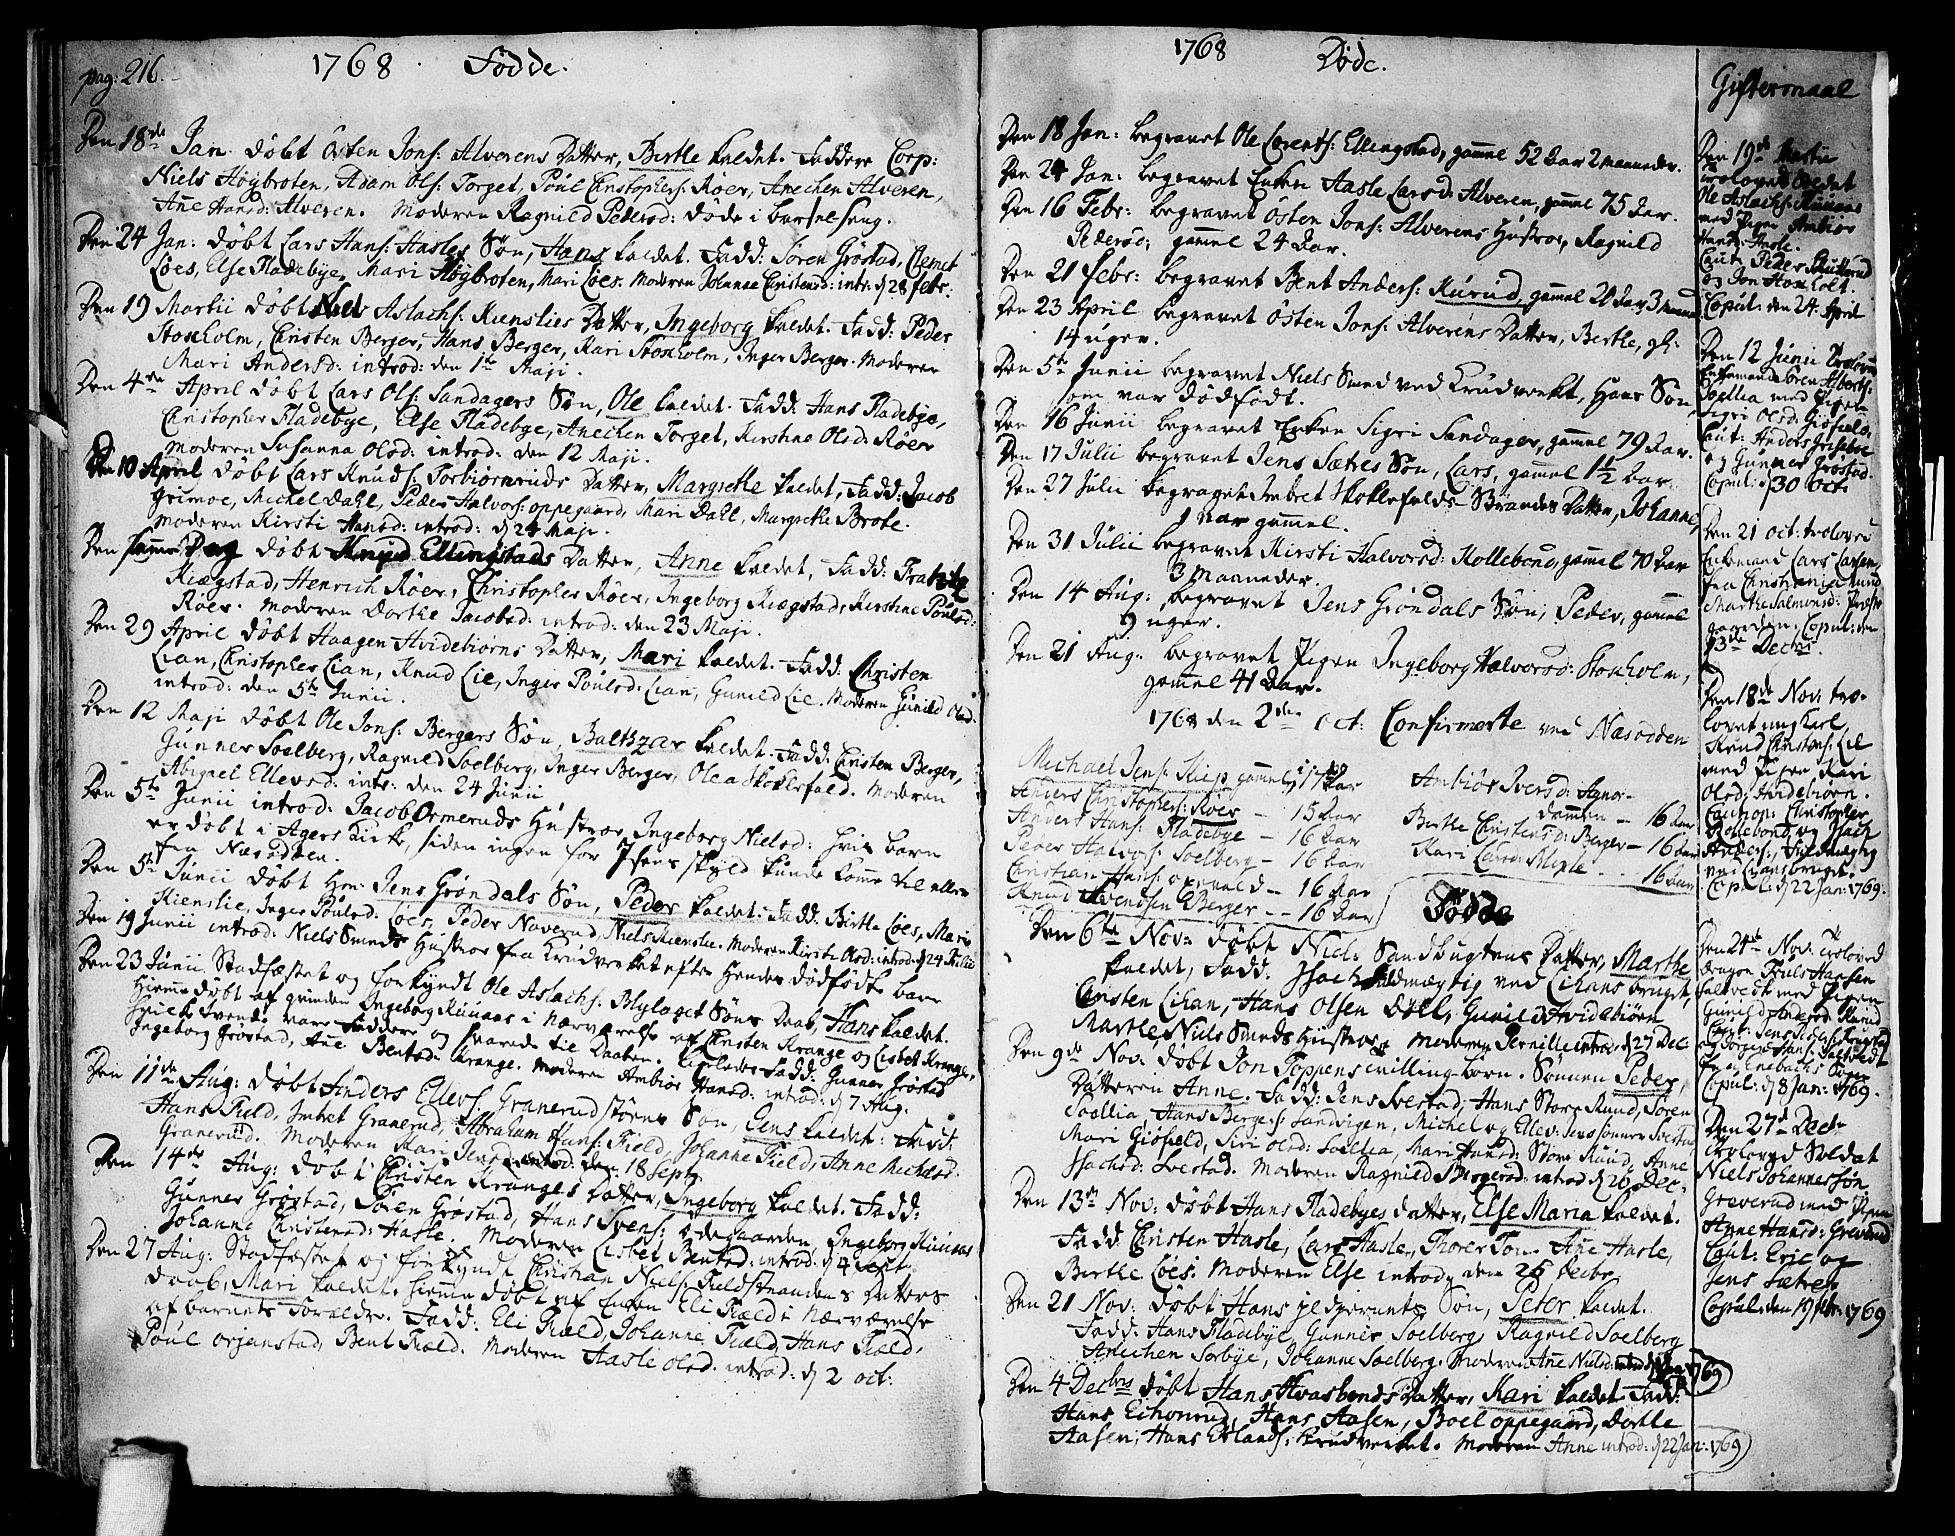 pag: 216.
1768. Födde.
Den 18de Jan. döbt Östen Jons: Alverens Datter, Birthe kaldet. Faddere Corp:
Niels Høgbroten, Adam Ols: Torget, Poul Christophers: Røer, Anechen Alveren,
Ane Hansd: Alveren. Moderen Ragnild Pedersd: döde i barselseng.
Den 24 Jan: döbt Lars Hans: Hasles Sön, Hans kaldet. Fadd: Sören Gröstad, Clemet
Löes, Else Fladebye, Mari Høgbroten, Mari Löes. Moderen Johanna Christensd: intr: d 28 febr:
Den 19 Martii döbt Niels Aslachs: Kienslies Datter, Ingeborg kaldet. Fadd: Peder
Stoxholm, Christen Berger, Hans Berger, Kari Stoxholm, Inger Berger. Moderen
Mari Andersd: introd: den 1te Maji.
Den 4de April döbt Lars Ols: Sandagers Sön, Ole kaldet. Fadd: Hans Fladebye,
Christopher Fladebye, Else Fladebye, Anechen Torget, Kirstine Olsd: Röer
Moderen Susanna Olsd: introd: den 12 Maji.
Den 10 April döbt Lars Knuds: Torbiörnruds Datter, Margrethe kaldet, Fadd: Jacob
Grimoe, Michel Dahl, Peder Halvors: oppegaard, Mari Dahl, Margrethe Brote.
Moderen Kirsti Hansd: introd: d 24 Maji.
Den samme Dag döbt Knud Ellingstads Datter, Anne kaldet, Fadd:
Kiægstad, Henrich Röer, Christopher Röer, Ingeborg Kiægstad, Kirstine Poulsd:
Röer. Moderen Dorthe Jacobsd: introd: den 23 Maji.
Den 29 April döbt Haagen Hvidebiörns Datter, Mari kaldet. Fadd: Christen
Lian, Christopher Lian, Knud Lie, Inger Poulsd: Lian, Gunild Lie. Moderen Gunild Olsd:
introd: den 5te Junii.
Den 12 Maji döbt Ole Jons: Bergers Sön, Balthzar kaldet. Fadd: Christen Berger,
Gunner Soelberg, Ragnild Soelberg, Inger Berger, Olea Skoklefald. Moderen
Abigael Ellevsd: intr: den 24 Junii
Den 5te Junii introd: Jacob Ormeruds Hustroe, Ingeborg Nielsd: hvis barn
er döbt i Agers Kirke, siden ingen for Isens skyld kunde komme til eller
fra Næsodden.
Den 5te Junii döbt Hr: Jens Gröndals Sön, Peder kaldet: Fadd: Birthe Löes, Mari
Kienslie, Inger Poulsd: Löes, Peder Naverud, Niels Kienslie. Moderen Kirsti Olsd: introd: d 24 Julii
Den 19 Junii introd: Niels Smeds Hustroe fra Krudverket efter hendes dödfödte barn
Den 23 Junii Stadfæstet og forkyndt Ole Aslachs: Blylaget Söns Daab, Hans kaldet.
Hiemmedöbt af qvinden Ingeborg Kiuuaas i Nærværelse af Christen Krange og Lisbet Krange,
hvilke tvende vare Faddere og svarede til Daaben. Fadd: Gunner Gröstad
Ingeborg Gröstad, Ane Bentsd: Krange. Moderen Ambiör Hansd: introd: d 7 Aug:
Den 11te Aug: döbt Anders Ellevs: Granerud störns Sön, Jens kaldet: Fadd:
Hans Field, Imbret Granerud, Abraham Hans: Field, Johanne Field, Anne Michelsd:
Granerud. Moderen Kari Jensd: introd: den 18 Septr:
Den 14de Aug: döbt Christen Kranges Datter, Ingeborg kaldet. Fadd:
Gunner Gröstad, Sören Gröstad, Hans Svens: Ödegaarden, Ingeborg Kiuuaas
Johanne Christensd: Hasle. Moderen Lisbet Bentsd: introd: d 4 Sept
Den 27 Aug: Stadfæstet og forkyndt Christian Niels: Fieldstrandens Datters
daab, Mari kaldet. Hiemmedöbt af Enken Eli Field i Nærværelse
af barnets Foreldre. Fadd: Eli Field, Johanne Field, Hans Field,
Poul orjenstad, Bent Field. Moderen Aasle Olsd: introd: d 2 oct:
1768 Döde.
Den 18 Jan: begravet Ole Lorents: Ellingstad, gammel 52 Aar 2 maaneder.
Den 24 Jan: begravet Enken Aasle Larsd: Alveren, gammel 75 Aar.
Den 16 Febr: begravet Östen Jons: Alverens Hustroe, Ragnild
Pedersd; gammel 24 Aar.
Den 21 Febr: begravet Bent Anders: Kurud, gammel 20 Aar 3 maaned
Den 23 April begravet Östen Jons: Alverens Datter, Berthe, gl:
14 uger.
Den 5te Junii begravet Niels Smed ved Krudverket, Hans Sön,
som var dödfödt.
Den 16 Junii begravet Enken Sigri Sandager, gammel 79 Aar.
Den 17 Julii begravet Jens Sætres Sön, Lars, gammel 1½ Aar.
Den 27 Julii begravet Imbret Skoklefalds Strandes Datter, Johanne,
1 Aar gammel.
Den 31 Julii begravet Kirsti Halvorsd: Kollebond, gammel 70 Aar
3 Maaneder.
Den 14 Aug: begravet Jens Gröndals Sön, Peder, gammel
9 uger.
Den 21 Aug: begravet Pigen Ingeborg Halvorsd: Stoxholm,
gammel 41 Aar.
1768 den 2den Oct: Confirmerte ved Næsodden
Michael Jens: Kiep gammel 17 Aar
Anders Christophers: Röer — 15 Aar
Anders Hans: Fladebye — 16 Aar
Peder Halvors: Soelberg — 16 Aar
Christian Hans: oxevald — 16 Aar
Knud Svendsen Berger — 16 Aar
Ambiör Iversd: Agnor-
dammen — 16 Aar
Birthe Christensd: Berger — 16 Aar
Kari Larsd: — 16 Aar
Födde
Den 6te Nov: döbt Niels Sandbugtens Datter, Marthe
kaldet, Fadd. Isach fuldmægtig ved Lihans bruget,
Christen Lihan, Hans Olsen Döll, Gunild Hvidebiörn
Marthe Niels Smeds Hustroe. Moderen Pernille introd: d 27 Dec
Den 9de Nov: döbt Jon Toppens tvilling börn. Sönnen Peder,
Datteren Anne. Fadd: Jens Svestad, Hans Store Ruud, Sören
Soellia, Hans Berger: Sandvigen, Michel og Ellev Jenssönner Svestad
Mari Giöfield, Siri Olsd: Soellia, Mari Hansd: Store Ruud, Anne
Isachsd: Svestad. Moderen Ragnild Borgersd: introd d 26 Dec.
Den 13de Nov: döbt Hans Fladebyes datter, Else Maria kaldet.
Fadd Christen Hasle, Lars Hasle, Thorer Ton. Ane Hasle,
Birthe Löes. Moderen Else introd, den 26 Decbr
Den 21 Nov: döbt Hans Sön, Peter kaldet.
Fadd: Hans Fladebye, Gunner Soelberg, Ragnild Soelberg
Anechen Sorbye, Johanne Soelberg. Moderen Ane Nielsd: introd 1769
Den 4 Decbris döbt Hans Hvasbonds Datter, Kari kaldet Fadd:
Hans Echornrud, Hans Aasen, Boel oppegaard, Dorthe
Aasen, Hans Erlands: Krudverket. Moderen Anne introd: d 22 Jan: 1769
Giftermaal
Den 19de Martii
trolovet Soldat
Ole Aslachs: Kiuuaas
med Pigen Ambiör
Hansd: Hasle.
Caut: Peder
og Jon Stoxholt.
Copul: den 24 April
Den 12 Junii trolovet
Enkemand Sören Alberts:
Soellia med Pigen
Sigri Olsd: Giöfield.
Caut: Anders
og Gunner Gröstad.
Copul: d 30 Oct
Den 21 oct: trolovet
Enkemand Lars Larsen
fra Christiania med
Marthe Salmonsd: Præste
gaarden. Copul: den
13de Decbr.
Den 18de Nov: tro-
lovet ung Karl
Knud Christens: Lie
med Pigen Kari
Olsd: Hvidebiörn.
Caution: Christopher
Kollebond og Isach
Anders: Fuldmægtig
ved Lihansbruget.
Copul: d 22 Jan: 1769.
Den 24de Nov: troloved
dragon Truls Hansen
Faltvedt med Pigen
Gunild
Caut: Jens
og Jörgen Hans: Faltvedt
fra Enebachs Sogn
Copul: d 8 Jan: 1769.
Den 27de Decbr
trolovet Soldat
Niels Johannessön
Greverud med Pigen
Anne Hansd: Greverud
Caut: Eric og
Jens Sætren
Copul: den 19 febr: 1769